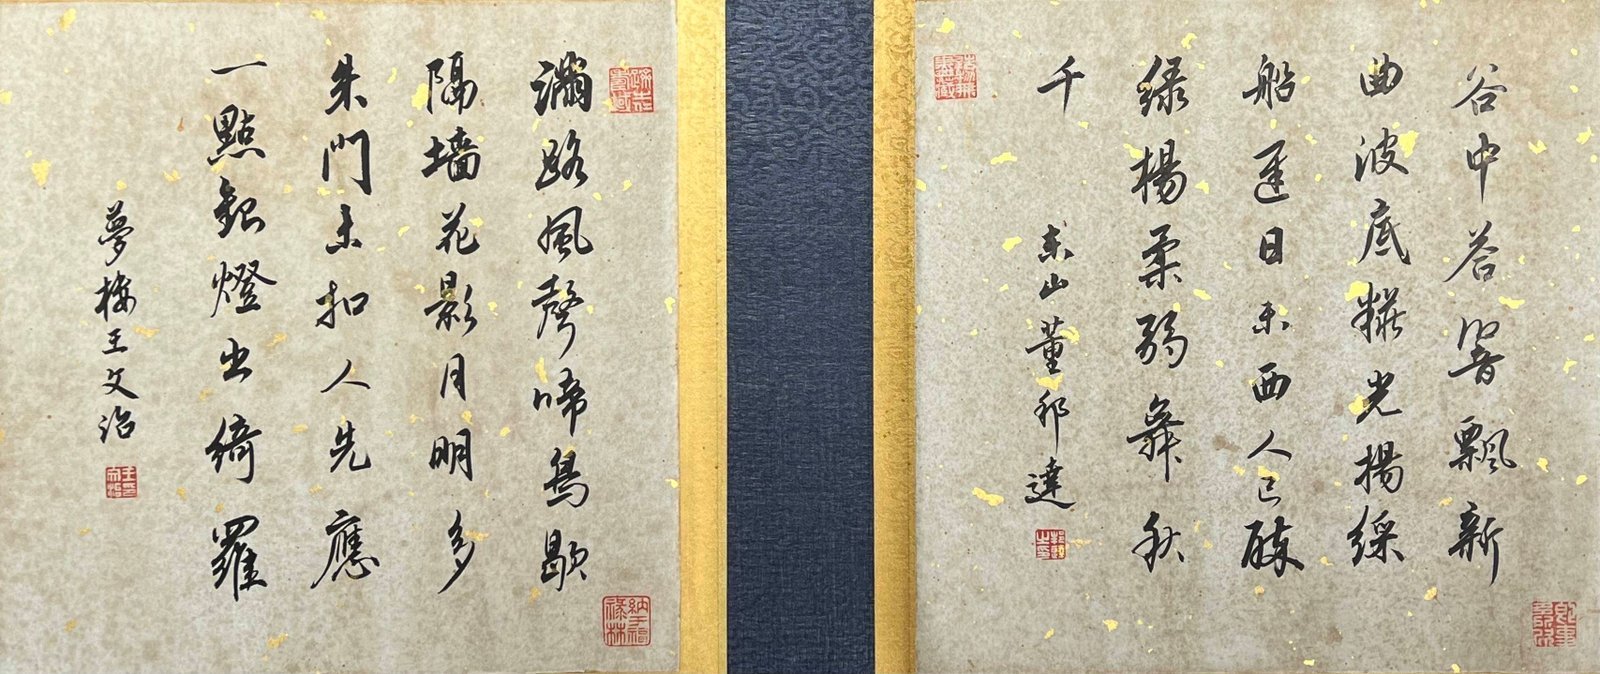 谷中荅響飄新
曲波底糚光揚綵
船遲日未西人已醉
綠楊柔弱舞秋
千
东山董邦達
滿路風聲啼鳥歇
隔墻花影月明多
朱門未扣人先應
一點銀燈出綺羅
夢樓王文治